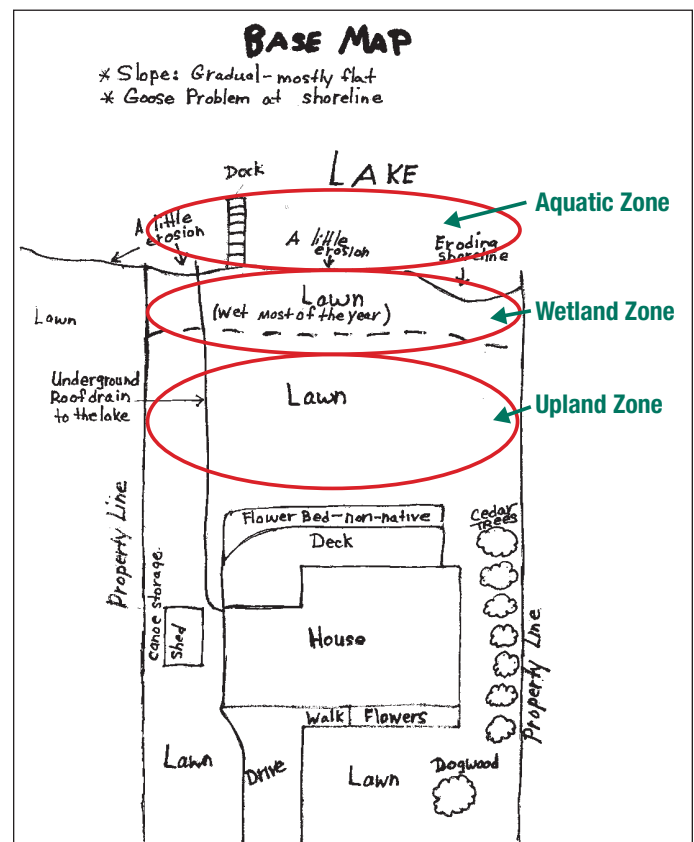 BASE MAP
* Slope: Gradual-mostly flat
* Goose Problem at shoreline
LAKE
Dock
Aquatic Zone
A little
erosion
A little
erosion
Eroding
shoreline
Lawn
Lawn
(Wet most of the year)
Wetland Zone
Underground
Roof drain
to the lake
Lawn
Upland Zone
Property Line
Flower Bed-non-native
Deck
Cedar
Trees
canoe storage
Shed
House
Property Line
Walk
Flowers
Lawn
Drive
Lawn
Dogwood